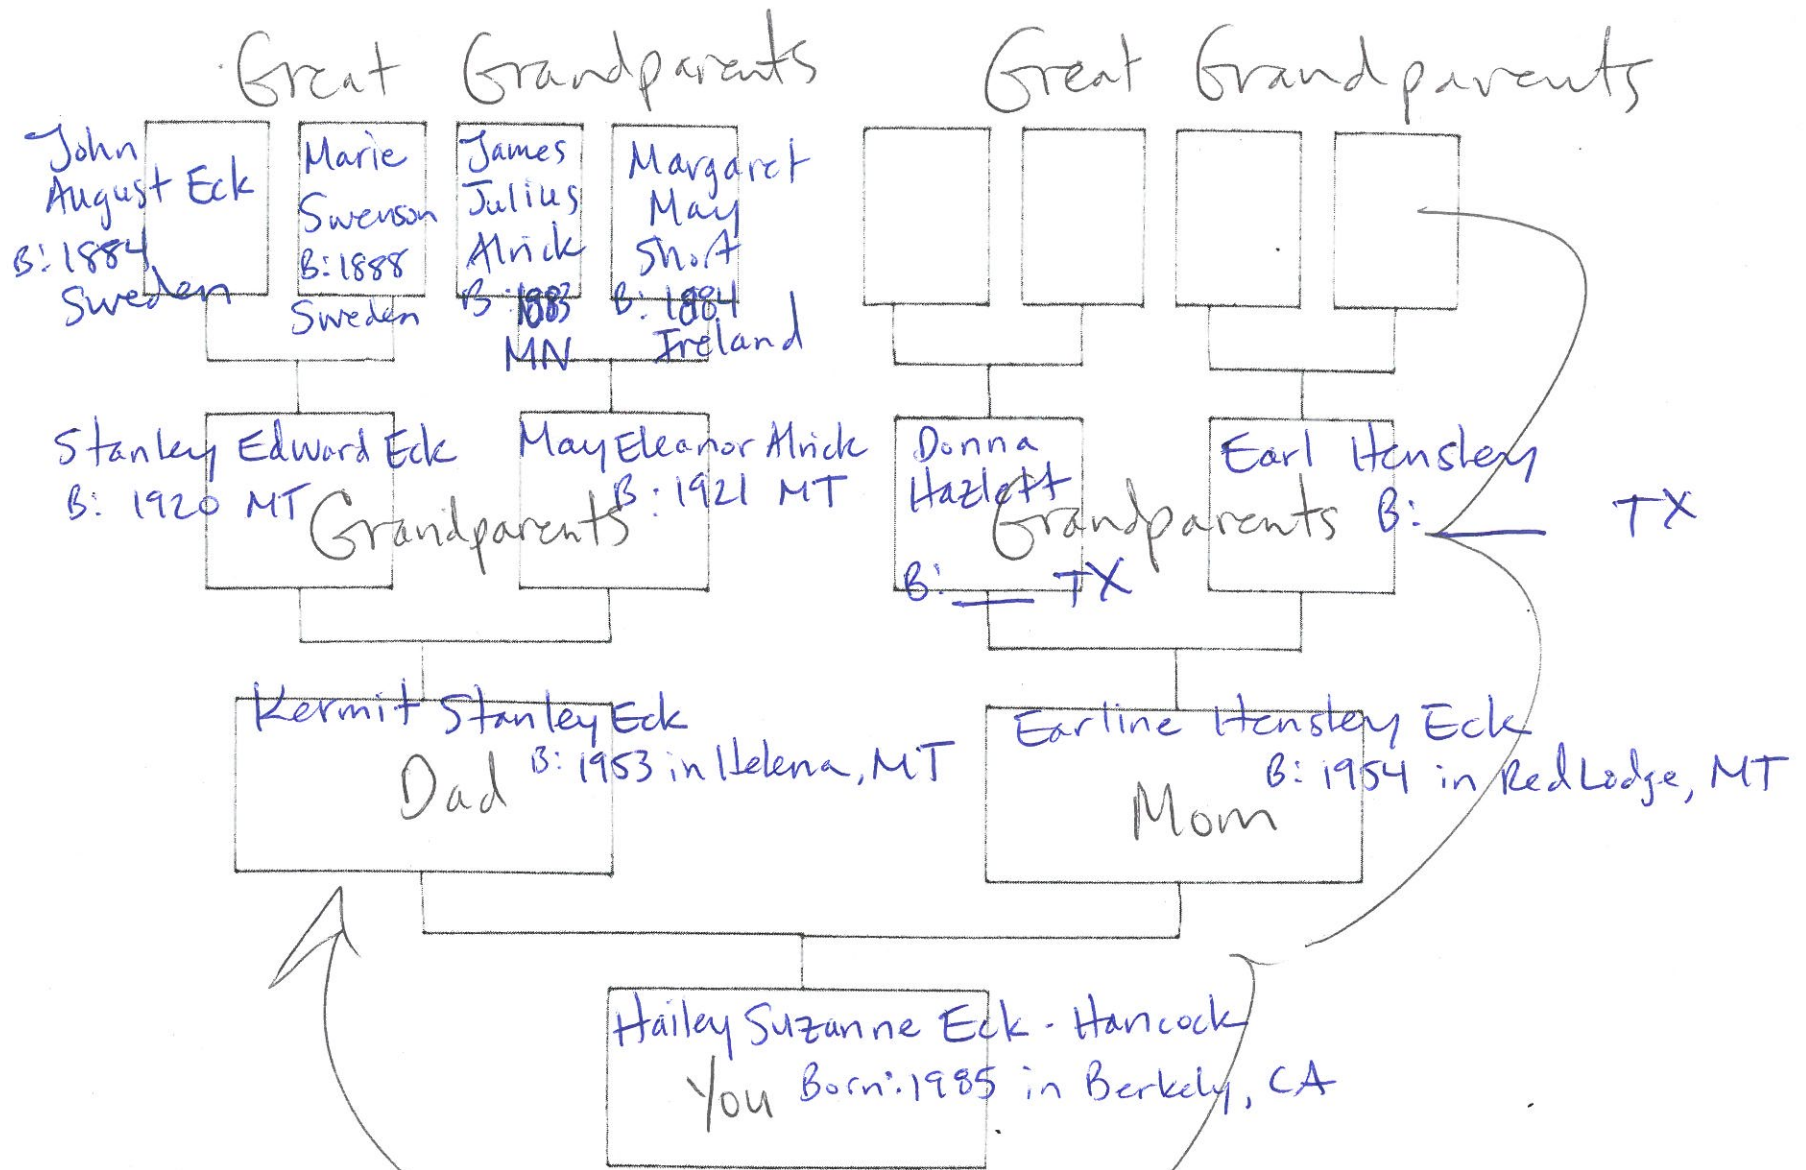 Great Grandparents
Great Grandparents
John
August Eck
B: 1884
Sweden
Marie
Swenson
B: 1888
Sweden
James
Julius
Alrick
B: 1883
MN
Margaret
May
Short
B: 1884
Ireland
Stanley Edward Eck
B: 1920 MT
May Eleanor Alrick
B: 1921 MT
Grandparents
Donna
Hazlett
B: ___ TX
Earl Hensley
B: ___ TX
Grandparents
Kermit Stanley Eck
B: 1953 in Helena, MT
Dad
Earline Hensley Eck
B: 1954 in Red Lodge, MT
Mom
Hailey Suzanne Eck-Hancock
Born: 1985 in Berkely, CA
You